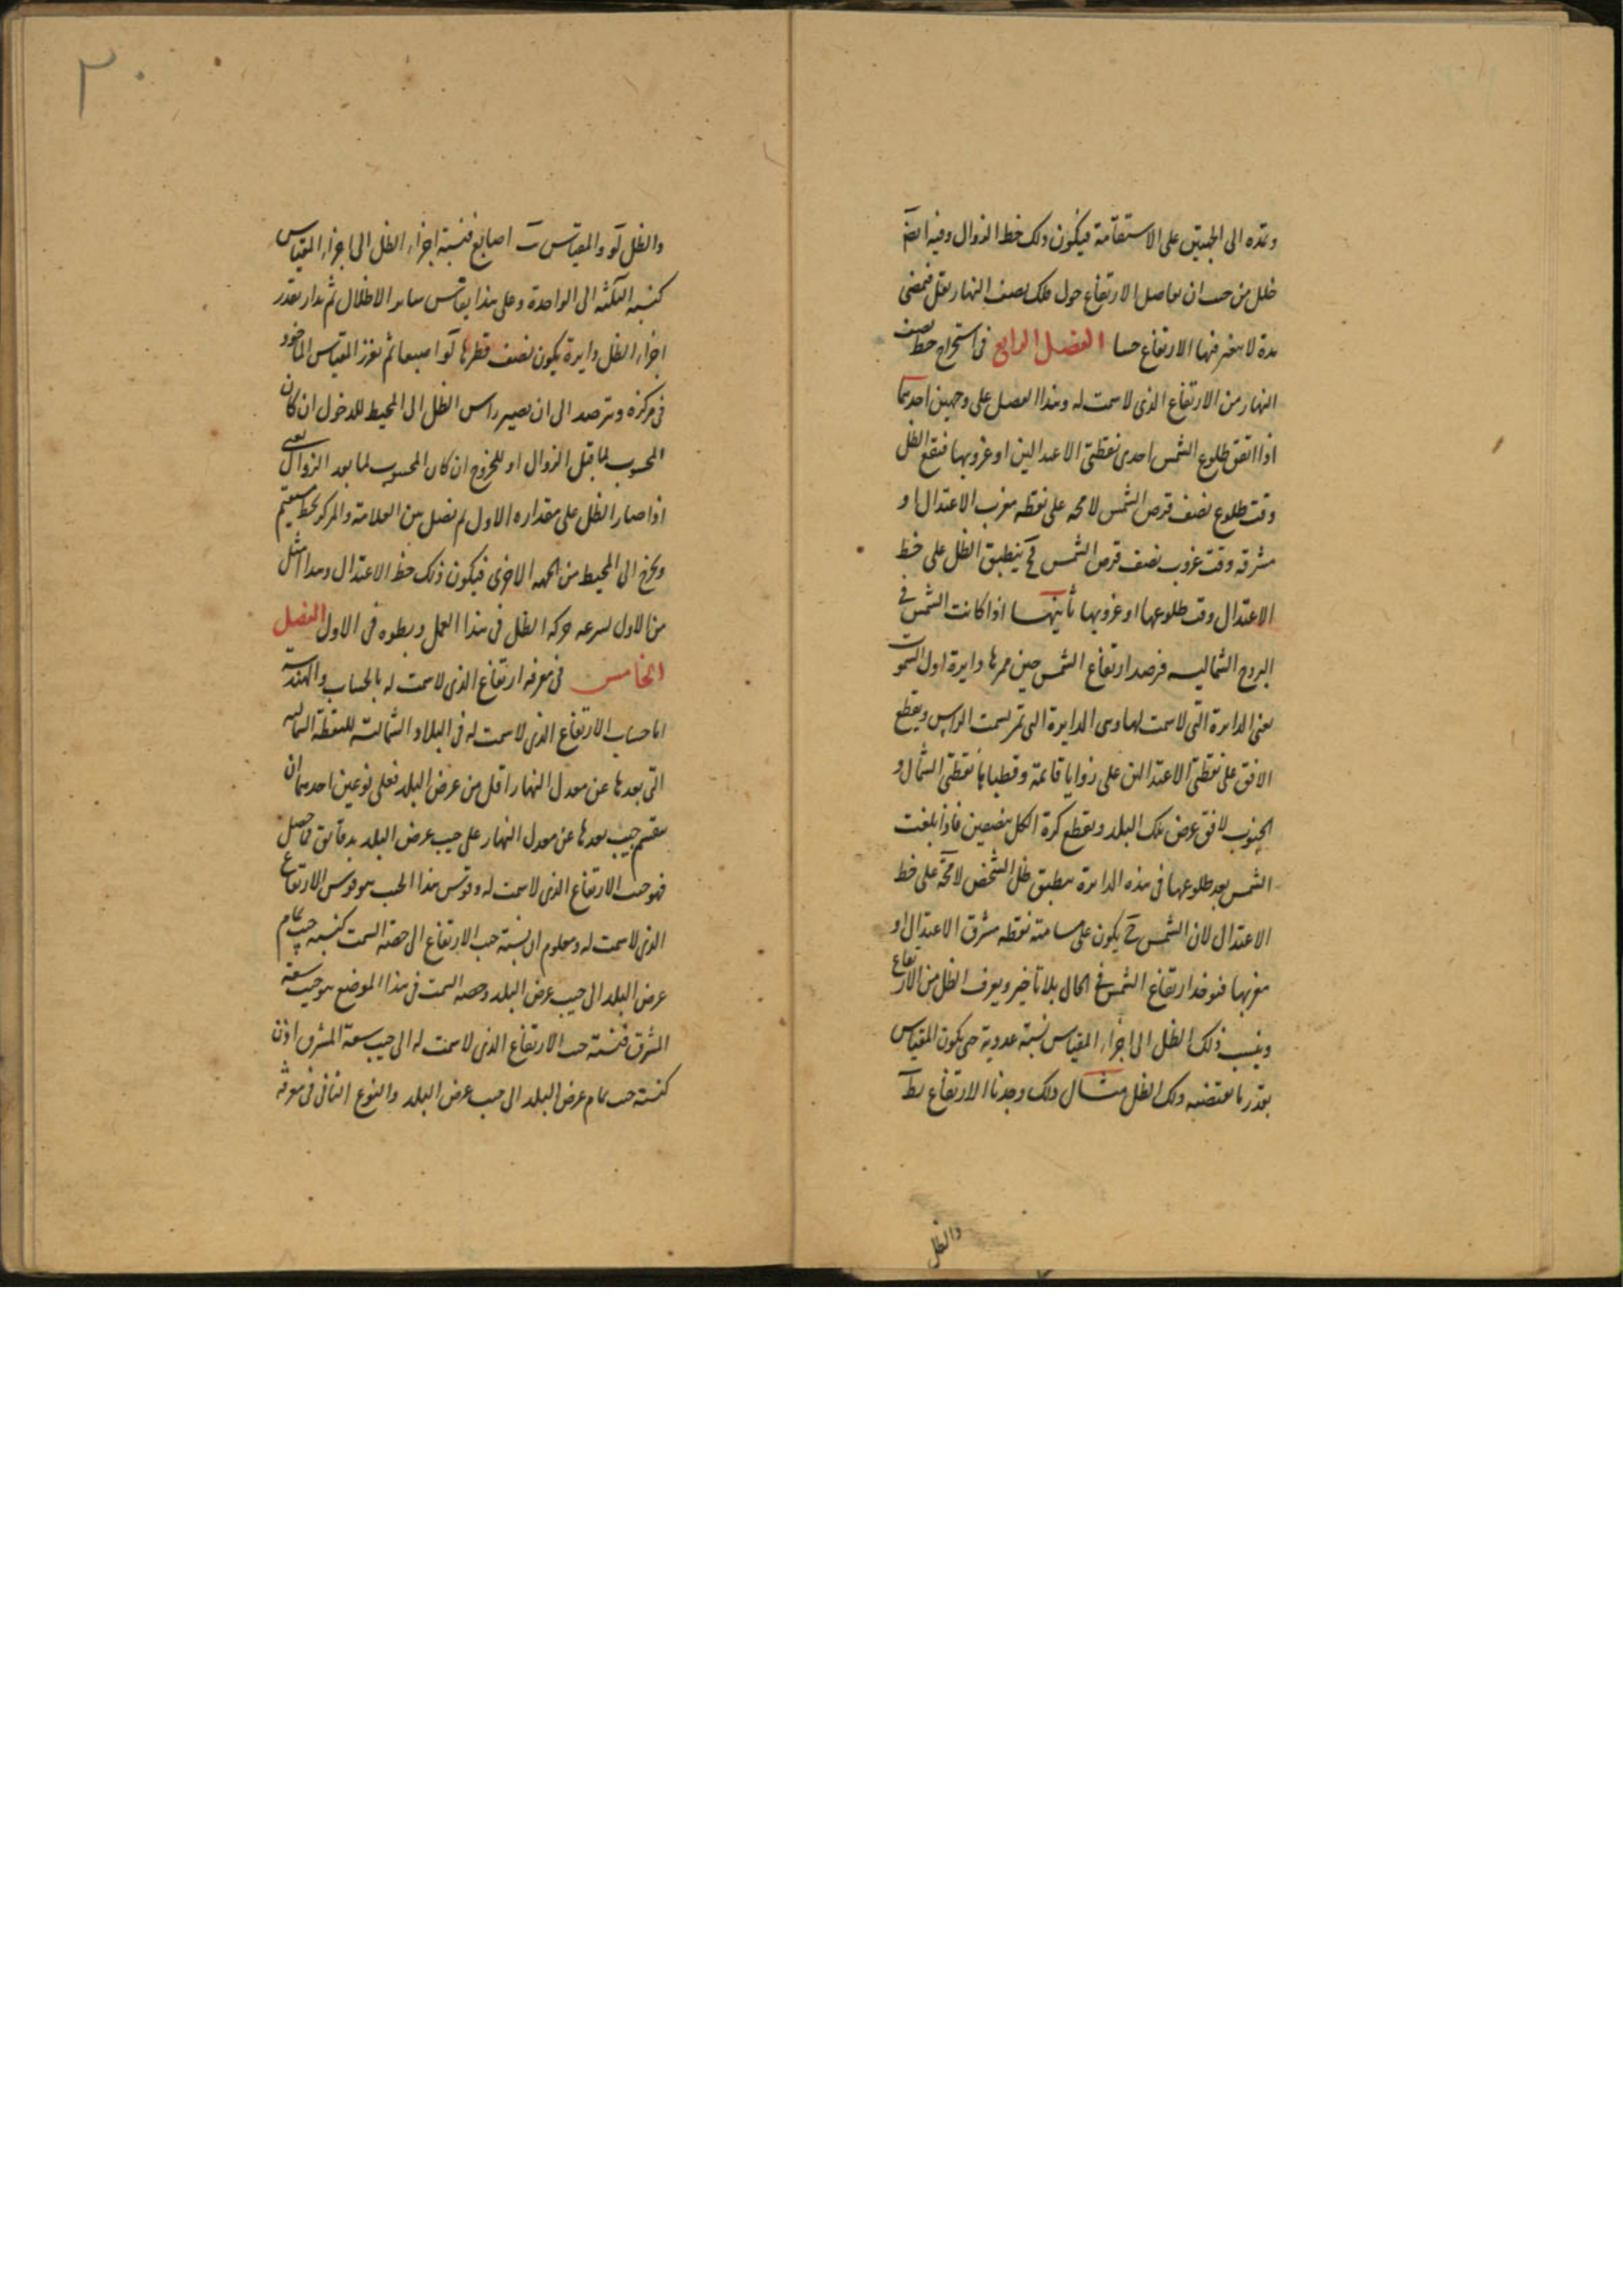 وتمده الى الجهتين على الاستقامة فيكون ذلك خط الزوال وفيه ايضا
خلل من حيث ان تفاضل الارتفاع حول فلك نصف النهار يقل فتمضى
مدة لا يتغير فيها الارتفاع حسا الفصل الرابع فى استخراج خط نصف
النهار من الارتفاع الذى لا سمت له وهذا الفصل على وجهين احدهما
اذا اتفق طلوع الشمس احدى نقطتى الاعتدالين او غروبها فيقع الظل
وقت طلوع نصف قرص الشمس لا محه على نقطه مغرب الاعتدال او
مشرقه وقت غروب نصف قرص الشمس فح ينطبق الظل على خط
الاعتدال وقت طلوعها او غروبها ثانيهما اذا كانت الشمس فى
البروج الشماليه فرصد ارتفاع الشمس حين ممرها دايرة اول السموت
يعنى الدايرة التى لا سمت لها وهى الدايرة التى تمر بسمت الراس ويقطع
الافق على نقطتى الاعتدالين على زوايا قايمة وقطباها نقطتى الشمال و
الجنوب لافق عرض تلك البلد ويقطع كرة الكل بنصفين فاذا بلغت
الشمس بعد طلوعها فى هذه الدايرة ينطبق ظل الشخص لا محة على خط
الاعتدال لان الشمس ح يكون على مسامتة نقطه مشرق الاعتدال او
مغربها فنوخذ ارتفاع الشمس فى الحال بلا تأخير ويعرف الظل من الارتفاع
وينسب ذلك الظل الى اجزاء المقياس نسبة عددية حتى يكون المقياس
بقدر ما يقتضيه ذلك الظل مثال ذلك وجدنا الارتفاع يط
والظل
والظل لو والمقياس يب اصابع فنسبة اجزاء الظل الى اجزاء المقياس
كنسبه الثلثه الى الواحدة وعلى هذا يقاس ساير الاظلال ثم يدار بقدر
اجزاء الظل دايرة يكون نصف قطرها لو اصبعا ثم نغرز المقياس الماخوذ
فى مركزه ونترصد الى ان يصير راس الظل الى المحيط للدخول ان كان
المحسوب لما قبل الزوال او للخروج ان كان المحسوب لما بعد الزوال يعنى
اذا صار الظل على مقداره الاول ثم نصل بين العلامة والمركز بخط مستقيم
ويخرج الى المحيط من الجهه الاخرى فيكون ذلك خط الاعتدال وهذا امثل
من الاول لسرعه حركه الظل فى هذا العمل وبطوه فى الاول الفصل
الخامس فى معرفه ارتفاع الذى لا سمت له بالحساب والهندسة
اما حساب الارتفاع الذى لا سمت له فى البلاد الشمالية للنقطة الشماليه
التى بعدها عن معدل النهار اقل من عرض البلد فعلى نوعين احدهما ان
يقسم جيب بعدها عن معدل النهار على جيب عرض البلد بدقايق فما حصل
فهو جيب الارتفاع الذى لا سمت له وقوس هذا الجيب هو قوس الارتفاع
الذى لا سمت له ومعلوم ان نسبة جيب الارتفاع الى حصة السمت كنسبه جيب تمام
عرض البلد الى جيب عرض البلد وحصه السمت فى هذا الموضع هو جيب سعة
المشرق فنسبة جيب الارتفاع الذى لا سمت له الى جيب سعة المشرق اذن
كنسبة جيب تمام عرض البلد الى جيب عرض البلد والنوع الثانى فى معرفة